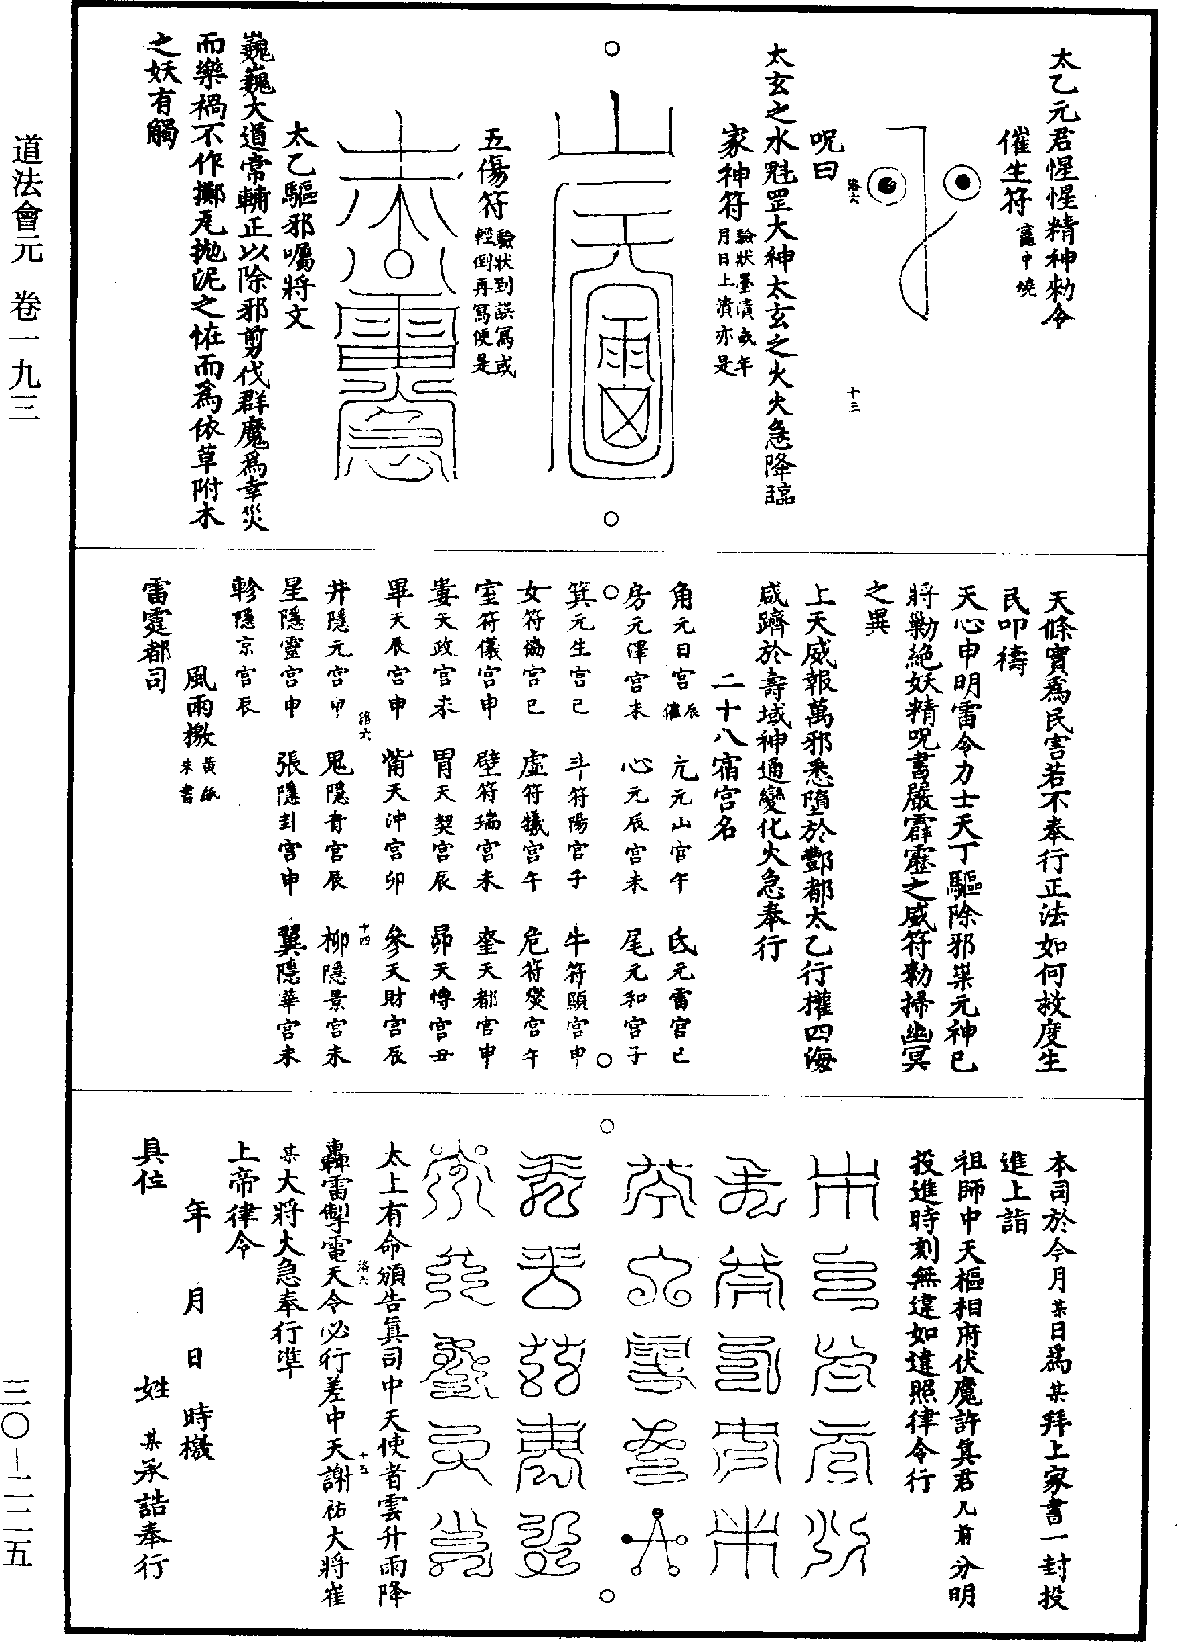 道法會元　卷一九三
太乙元君惺惺精神勑令
催生符
竈中燒
洛六
十三
呪曰
太玄之水魁罡大神太玄之火火急降臨
家神符
驗狀墨漬或年
月日上漬亦是
五傷符
驗狀到誤寫或
輕倒再寫便是
太乙驅邪囑將文
巍巍大道常輔正以除邪剪伐群魔爲幸災
而樂禍不作擲瓦拋泥之恠而爲依草附木
之妖有觸
天條實爲民害若不奉行正法如何救度生
民叩禱
天心申明雷令力士天丁驅除邪祟元神已
將勦絕妖精呪書嚴霹靂之威符勑掃幽冥
之異
上天威報萬邪悉墮於酆都太乙行權四海
咸躋於壽域神通變化火急奉行
二十八宿宮名
角元日宮辰催　亢元山宮午　氐元雷宮巳
房元澤宮未　心元辰宮未　尾元和宮子
箕元生宮巳　斗符陽宮子　牛符頤宮申
女符猗宮巳　虛符犧宮午　危符變宮午
室符儀宮申　壁符瑞宮未　奎天都宮申
婁天政宮未　胃天契宮辰　昴天慱宮丑
畢天辰宮申　觜天沖宮卯　參天財宮辰
洛六
十四
井隱元宮申　鬼隱育宮辰　柳隱景宮未
星隱靈宮申　張隱封宮申　翼隱華宮未
軫隱京宮辰
風雨檄
黃紙
朱書
雷霆都司
本司於今月某日爲某拜上家書一封投
進上詣
祖師中天樞相府伏魔許眞君几前分明
投進時刻無違如違照律令行
太上有命頒告眞司中天使者雲升雨降
洛六
十五
轟雷掣電天令必行差中天謝祐大將崔
某大將大急奉行準
上帝律令
年　月　日　時檄
具位　姓　某承誥奉行
三〇－二二五